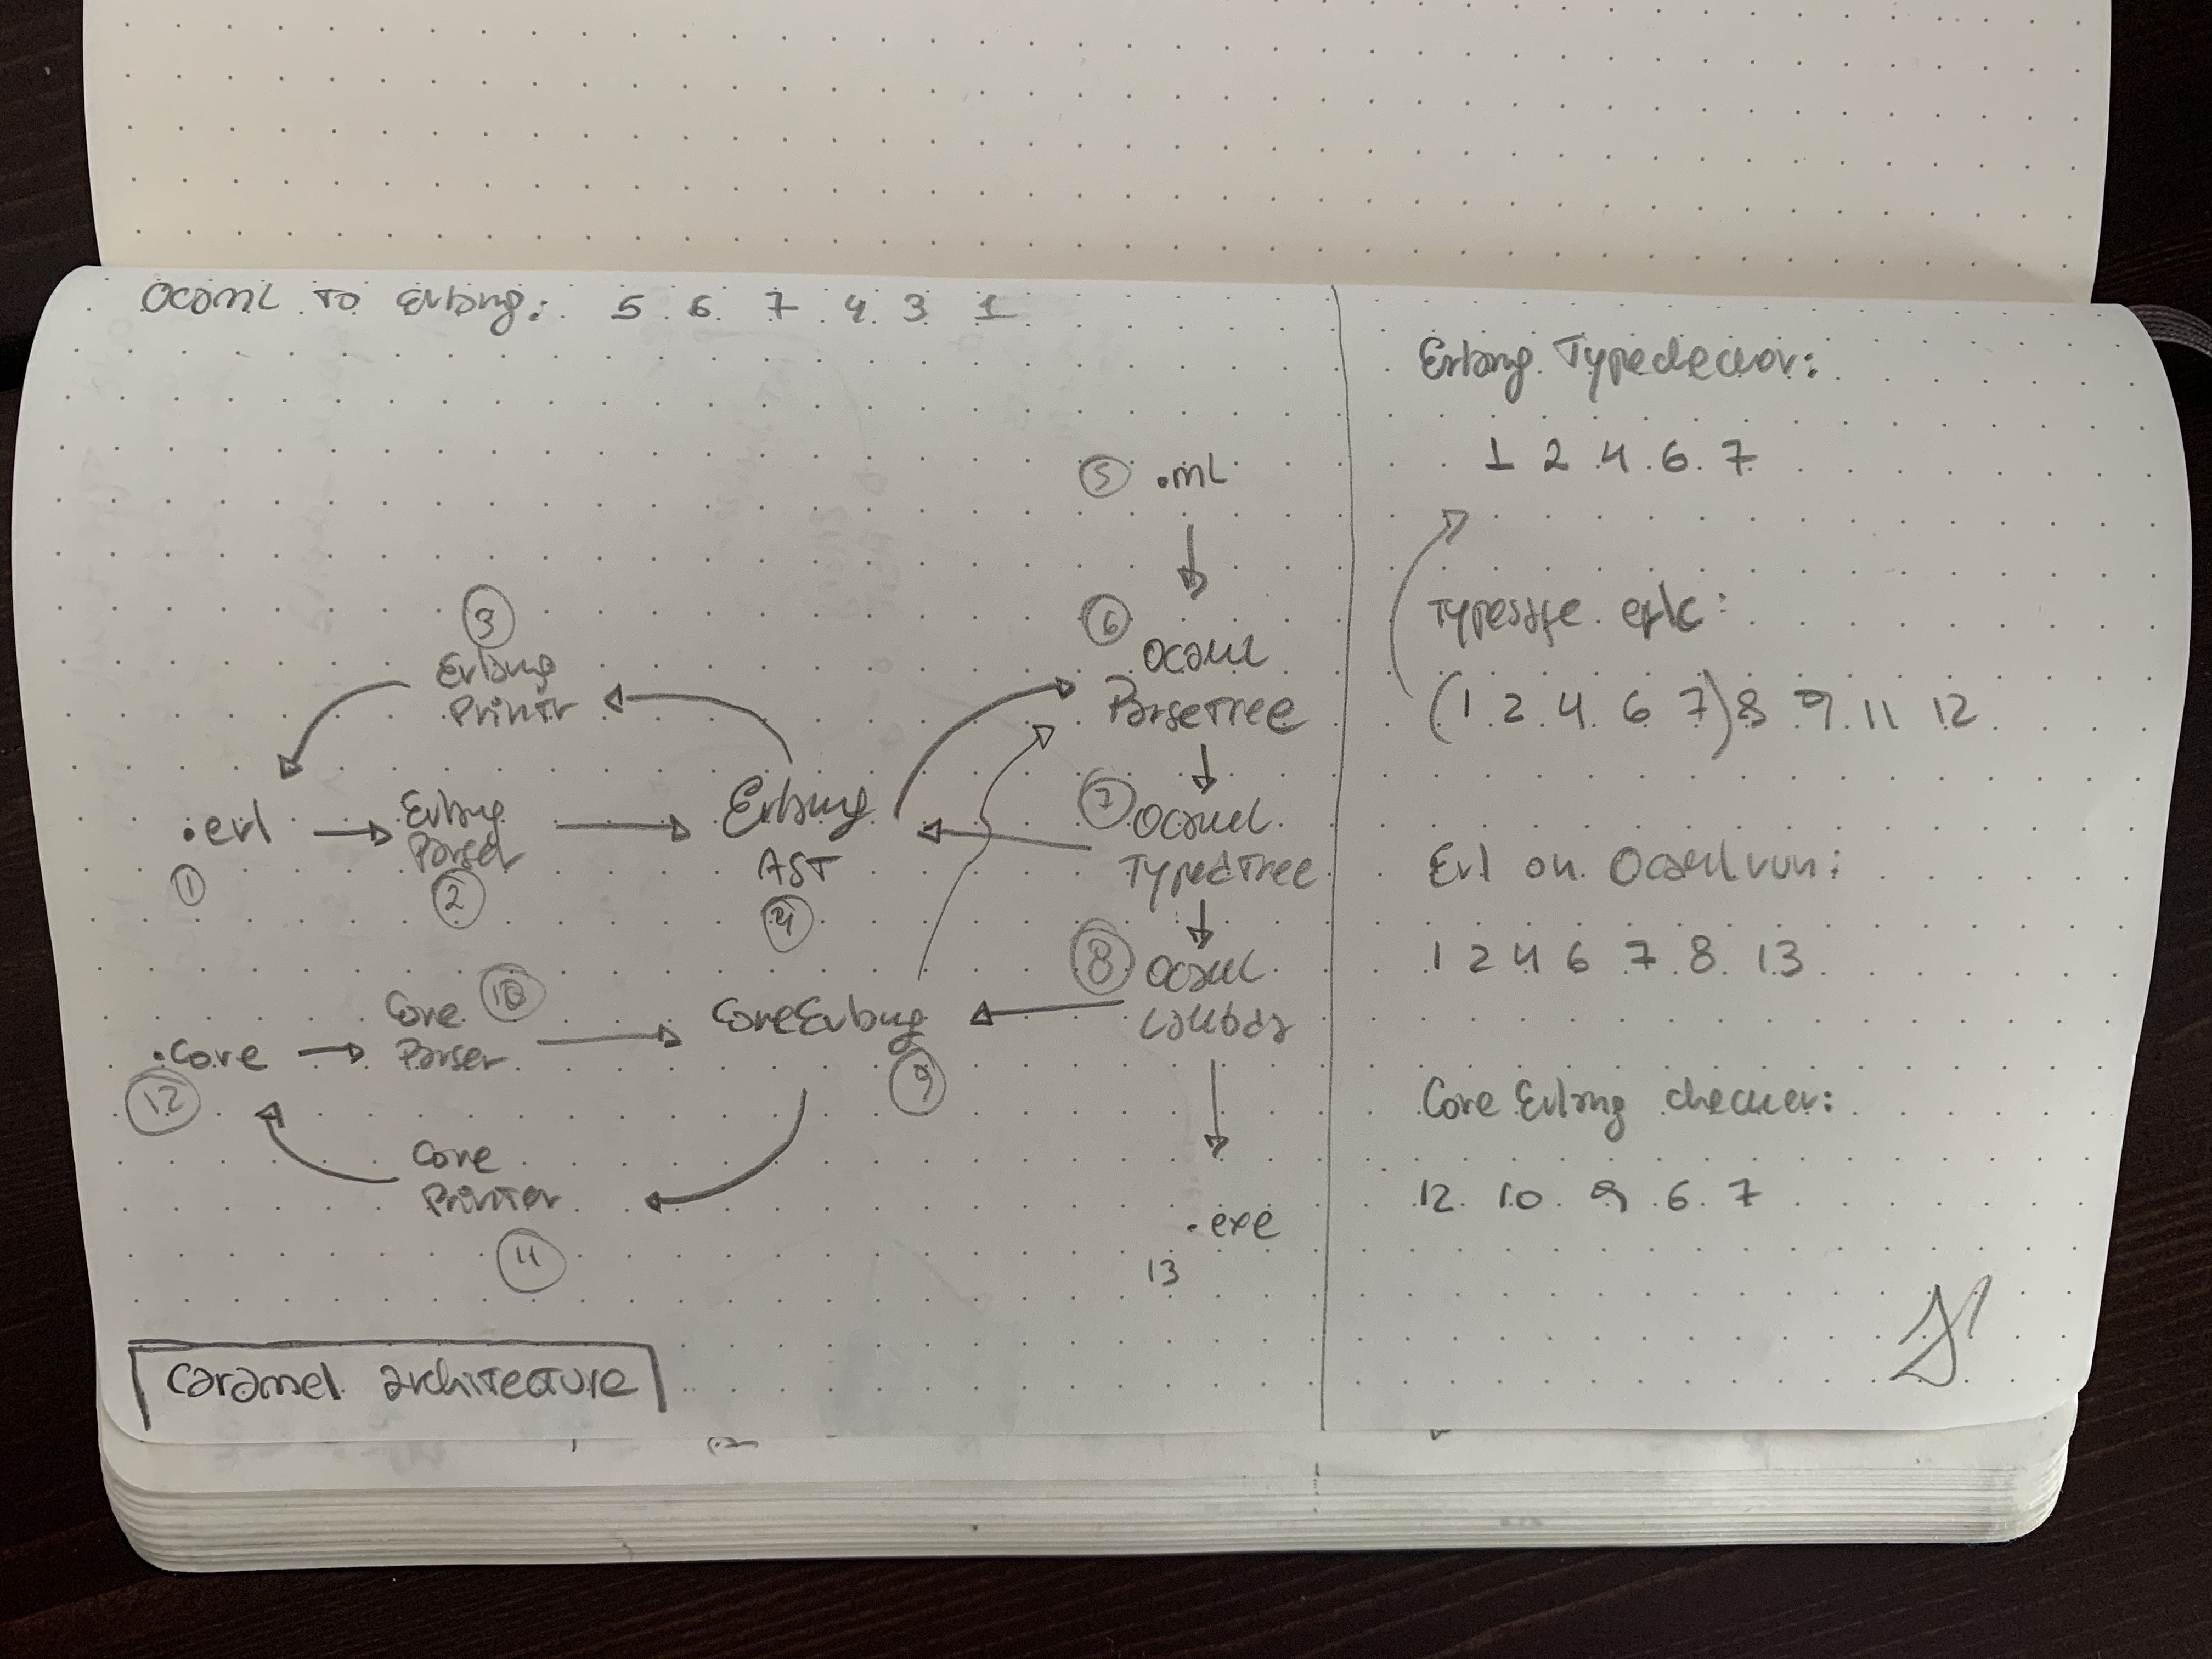 Ocaml to Erlang: 5 6 7 4 3 1
5 .ml
6
Ocaml
ParseTree
3
Erlang
Printr
7 Ocaml
TypedTree
.erl
1
Erlang
Parser
2
Erlang
AST
4
8 Ocaml
Lambda
Core 10
Parser
CoreErlang
9
.core
12
Core
Printer
11
.exe
13
Caramel architecture
Erlang Typechecker:
1 2 4 6 7
Typesafe erlc:
(1 2 4 6 7) 8 9 11 12
Erl on Ocamlrun:
1 2 4 6 7 8 13
Core Erlang checker:
12 10 9 6 7